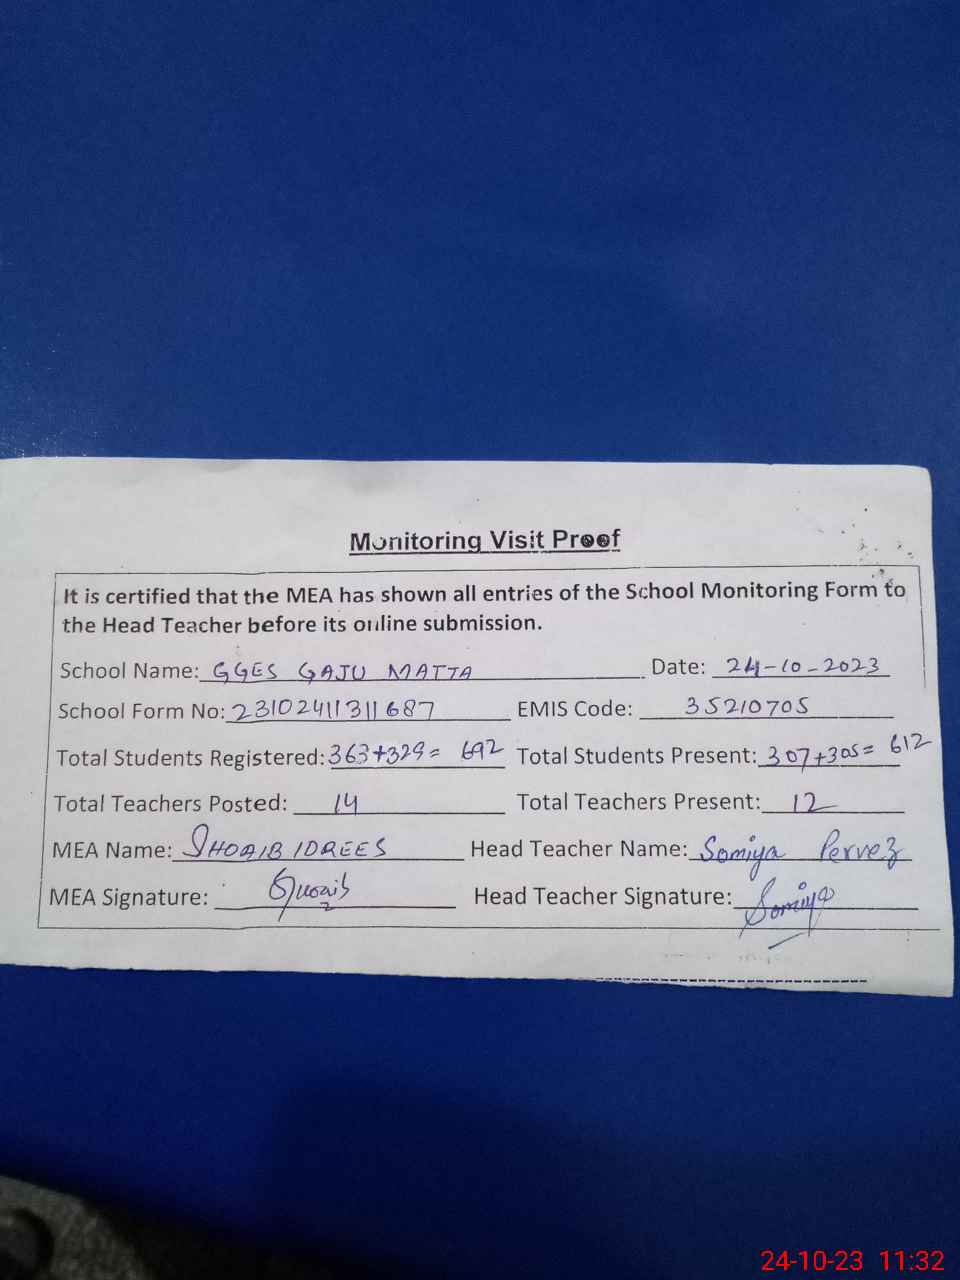 Monitoring Visit Proof
It is certified that the MEA has shown all entries of the School Monitoring Form to
the Head Teacher before its online submission.
School Name: GGES GAJU MATTA Date: 24-10-2023
School Form No: 23102411311687 EMIS Code: 35210705
Total Students Registered: 363+329= 692 Total Students Present: 307+305= 612
Total Teachers Posted: 14 Total Teachers Present: 12
MEA Name: SHOAIB IDREES Head Teacher Name: Somiya Pervez
MEA Signature: Shoaib Head Teacher Signature: Somiya
24-10-23 11:32